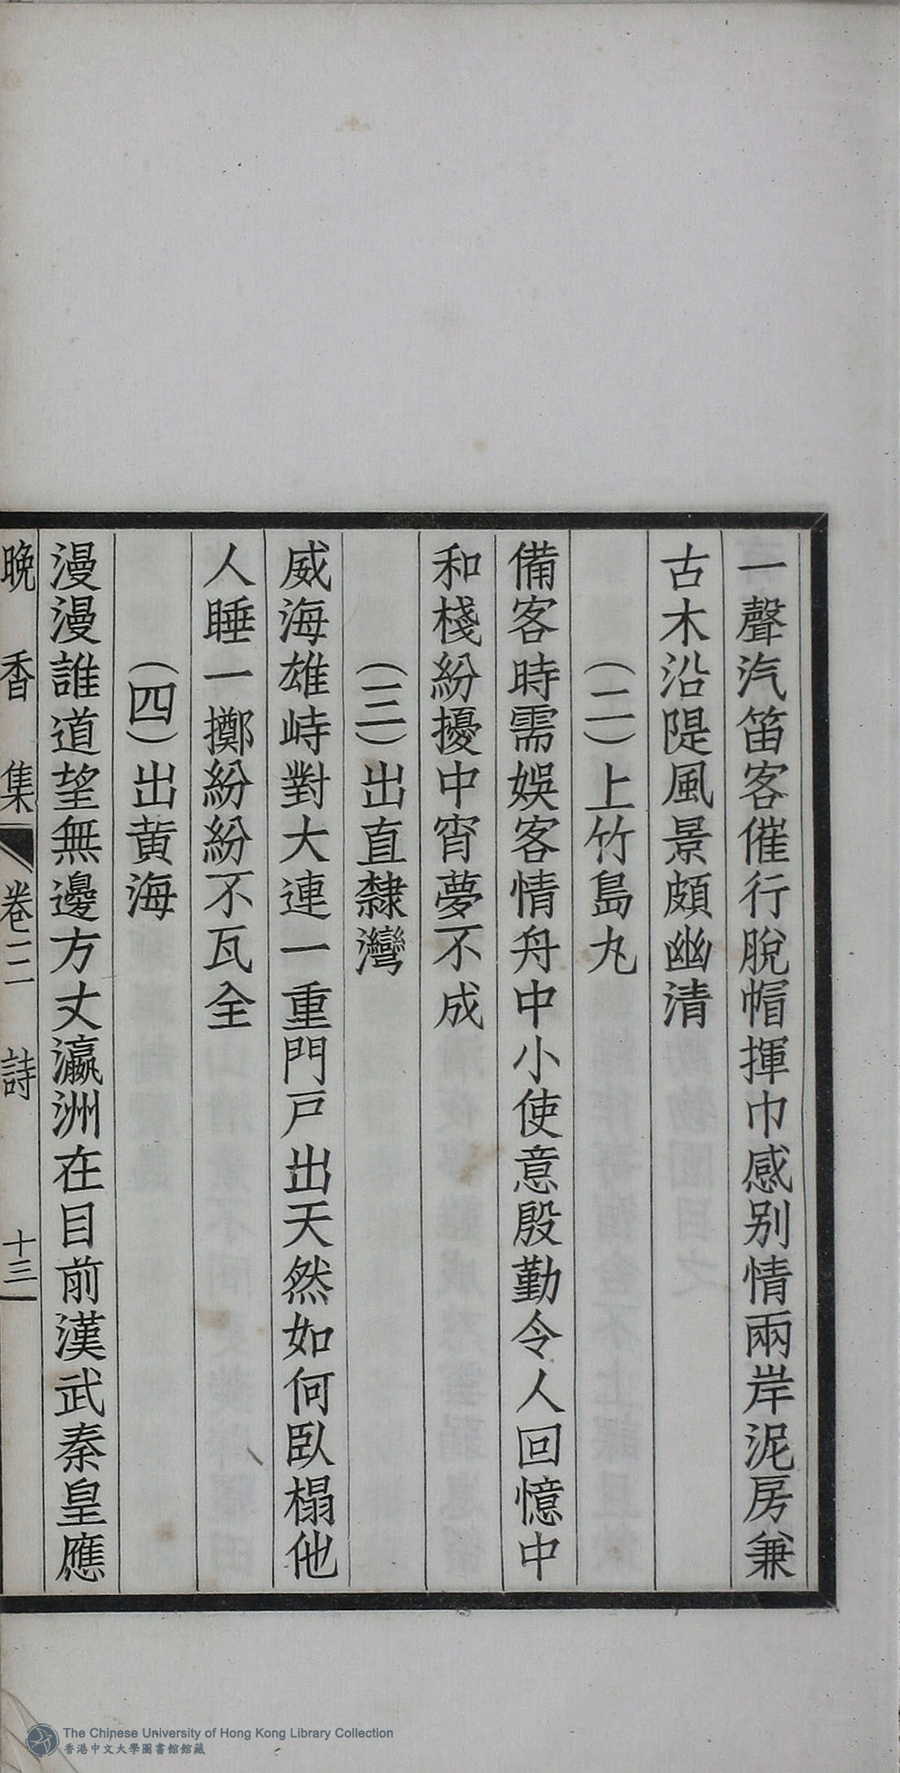 一聲汽笛客催行脫帽揮巾感别情兩岸泥房兼
古木沿隄風景頗幽清
(二)上竹島丸
備客時需娛客情舟中小使意殷勤令人回憶中
和棧紛擾中宵夢不成
(三)出直隸灣
威海雄峙對大連一重門戸出天然如何臥榻他
人睡一擲紛紛不瓦全
(四)出黄海
漫漫誰道望無邊方丈瀛洲在目前漢武秦皇應
晚香集 卷二 詩 十三
The Chinese University of Hong Kong Library Collection
香港中文大學圖書館館藏